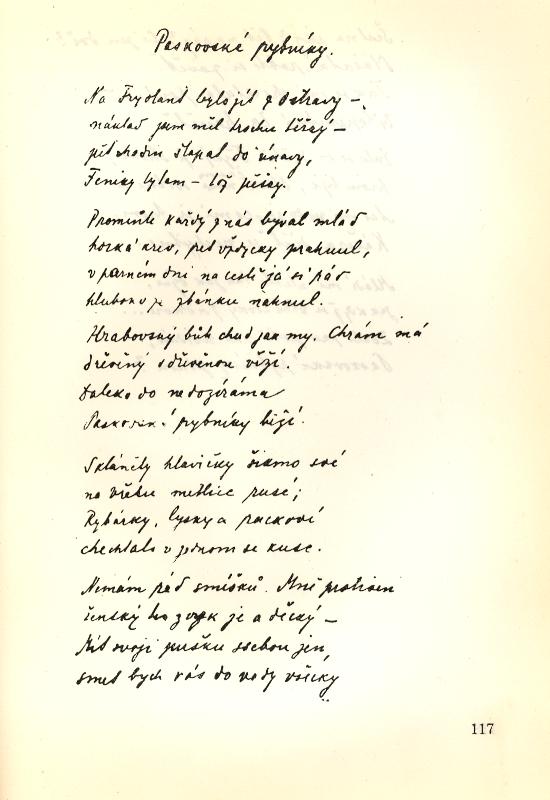 Paskovské rybníky.
Na Frydlant bylo jít z Ostravy –
náklad jsem měl trochu těžký –
pět hodin šlapat do únavy,
Feniky bylam – tož pěšky.
Promiňte každý z nás býval mlád
horká krev, ret vždycky prahnul,
v parném dni na cestě já si rád
hluboko ze žbánku nahnul.
Hrabovský bůh chud jak my. Chrám má
dřevěný s dřevěnou věží.
Daleko do nedozíráma
Paskovské rybníky běží.
Skláněly hlavičky šikmo své
na vršku metlice rusé;
Rybárky, lysky a rackové
chechtalo v jednom se kuse.
Nemám rád smíšků. Mně protiven
ženský ho zvyk je a děcký –
Mít svoji pušku ssebou jen,
smet bych vás do vody všecky
117